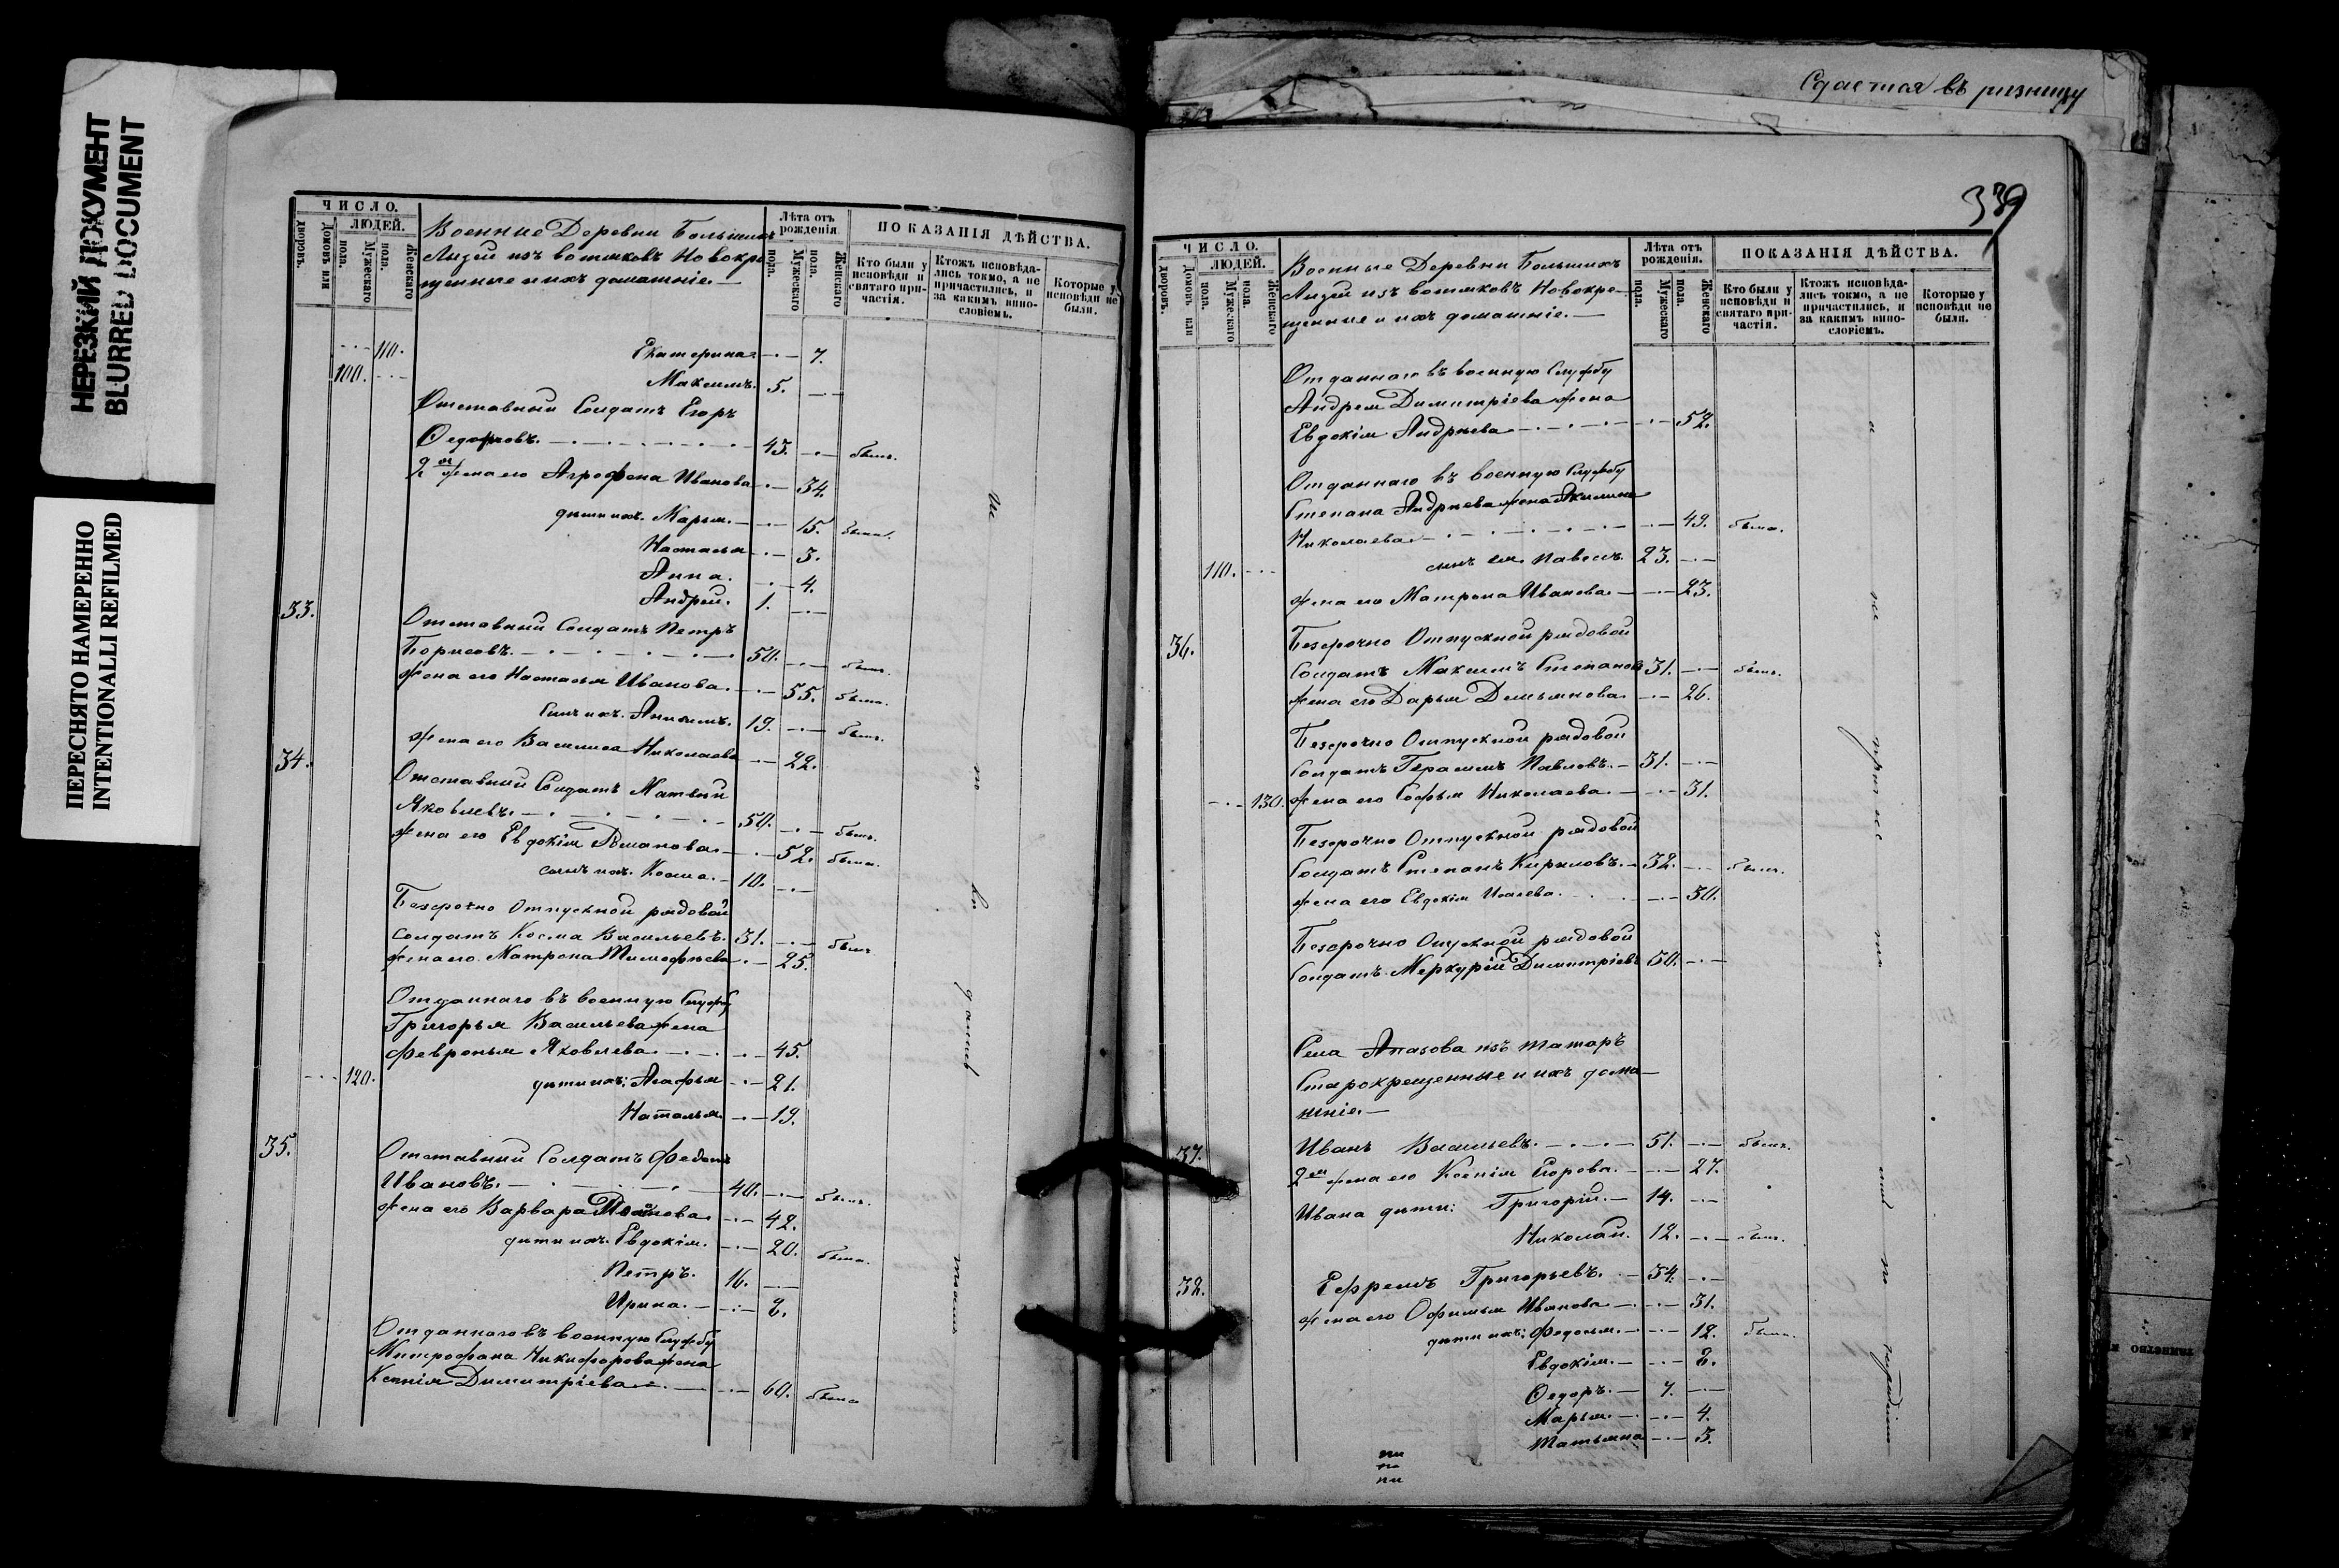 НЕРЕЗКИЙ ДОКУМЕНТ
BLURRED DOCUMENT
ПЕРЕСНЯТО НАМЕРЕННО
INTENTIONALLI REFILMED
ЧИСЛО.
ЛЮДЕЙ.
Домовъ или дворовъ.
Мужескаго пола.
Женскаго пола.
Военные Деревни Большихъ
Лызей изъ вотяковъ Новокре
щенные и ихъ домашніе. —
Лѣта отъ рожденія
Мужескаго пола.
Женскаго пола.
ПОКАЗАНІЯ ДѢЙСТВА.
Кто были у исповѣди и святаго причастія.
Ктожъ исповѣдались токмо, а не причастились, и за какимъ винословіемъ.
Которые у исповѣди не были.
110. Екатерина 7.
100. Максимъ. 5.
Отставный Солдатъ Егоръ
Ѳедоровъ. 45. былъ.
2я жена его Агрофена Иванова 34.
дѣти ихъ. Марья. 15. была.
Настасья 3.
Анна. 4.
Андрей. 1.
33. Отставный Солдатъ Петръ
Борисовъ. 50. былъ.
жена его Настасья Иванова. 55. была.
Сынъ ихъ. 19. былъ.
жена его Василиса Николаева 22.
34. Отставный Солдатъ Матвѣй
Яковлевъ. 50. былъ.
жена его Евдокія Романова. 52. была.
сынъ ихъ. Косма. 10.
Безсрочно Отпускной рядовой
солдатъ Косма Васильевъ. 31. былъ
жена его. Матрона Тимофѣева 25.
Отданнаго въ военную Службу
Григорья Васильева жена
Февронья Яковлева. 45.
120. дѣти ихъ: Агафья 21.
Наталья. 19.
35. Отставный Солдатъ Федотъ
Ивановъ. 40. былъ.
жена его Варвара 42.
дѣти ихъ. Евдокія. 20. была.
Петръ. 16.
Ирина. 2.
Отданнаго въ военную Службу
Митрофана Никифорова жена
Ксенія Димитріева. 60. была
Сдается въ ризницу
339
ЧИСЛО.
ЛЮДЕЙ.
Домовъ или дворовъ.
Мужескаго пола.
Женскаго пола.
Военные Деревни Большихъ
Лызей изъ вотяковъ Новокре—
щенные и ихъ домашніе. —
Лѣта отъ рожденія.
Мужескаго пола.
Женскаго пола.
ПОКАЗАНІЯ ДѢЙСТВА.
Кто были у исповѣди и святаго причастія.
Ктожъ исповѣдались токмо, а не причастились, и за какимъ винословіемъ.
Которые у исповѣди не были.
Отданнаго въ военную Службу
Андрея Димитріева жена
Евдокія Андрѣева 52.
Отданнаго въ военную Службу
Степана Андрѣева жена Акилина
Николаева 49. была.
110. сынъ ея. Павелъ. 23.
жена его Матрона Иванова. 23.
36. Безсрочно Отпускной рядовой
Солдатъ Максимъ Степановъ 31. былъ.
жена его Дарья Демьянова 26.
Безсрочно Отпускной рядовой
Солдатъ Герасимъ Павловъ. 31.
130. жена его Софья Николаева. 31.
Безсрочно Отпускной рядовой
Солдатъ Степанъ Кириловъ. 32. былъ.
жена его Евдокія Исаева. 30.
Безсрочно Опускной рядовой
Солдатъ. Меркурій Димитріевъ 50.
Села Апазова изъ татаръ
Старокрещенные и ихъ дома—
шніе. —
37. Иванъ Васильевъ. 51. былъ.
2я жена его Ксенія Егорова. 27.
Ивана дѣти: Григорій. 14.
Николай. 12. былъ.
38. Ефремъ Григорьевъ. 34.
жена его Офимья Иванова 31.
дѣти ихъ: Федосья. 12. была.
Евдокія. 2.
Ѳедоръ. 7.
Марья. 4.
Татьяна 3.